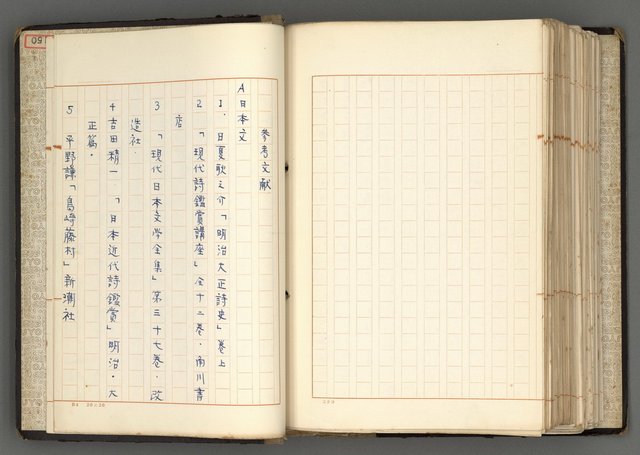 参考文献
A 日本文
1. 日夏耿之介「明治大正詩史」巻上
2 「現代詩鑑賞講座」全十二巻・角川書
店
3 「現代日本文学全集」第三十七巻・改
造社.
4 吉田精一 「日本近代詩鑑賞」明治・大
正篇・
5 平野謙「島崎藤村」新潮社
20×20
150